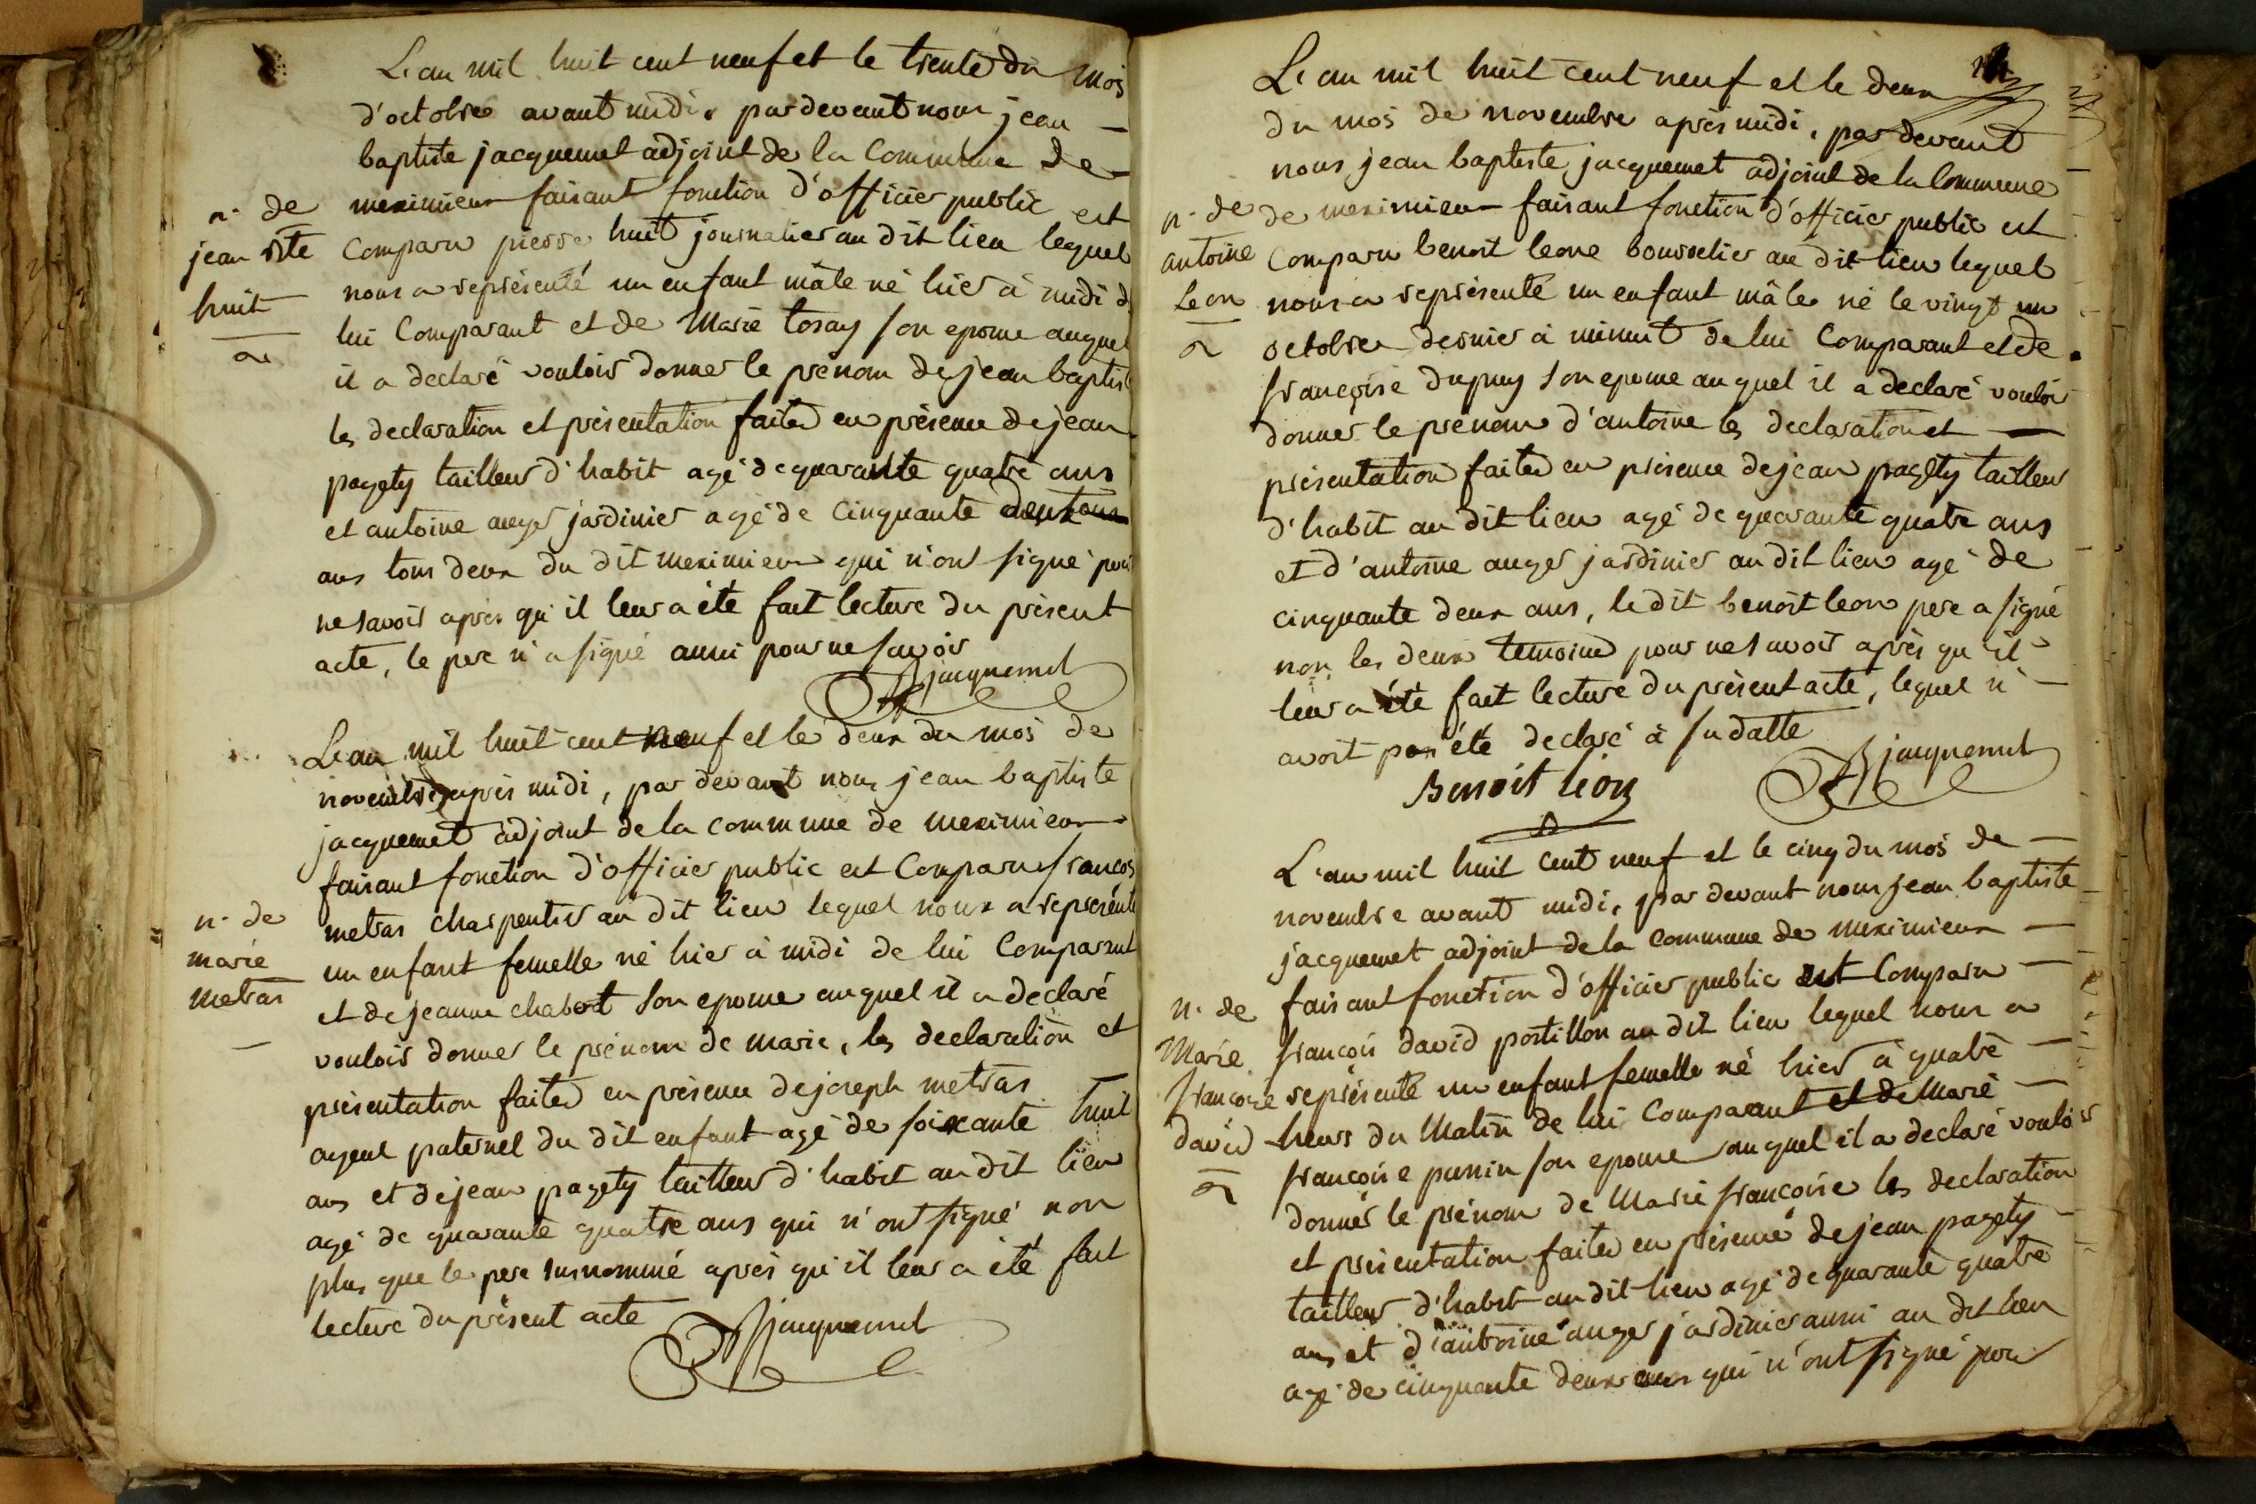 L'an mil huit cent neuf et le trente du mois
d'octobre avant midi, par devant nous jean
baptiste jacquemet adjoint de la Commune de
meximieux faisant fonction d'officier public est
Comparu pierre huit journalier au dit lieu lequel
nous a représenté un enfant mâle né hier à midi d
lui Comparant et de Marie toray son epouse auquel
il a declaré vouloir donner le prénom de jean baptist
les declaration et présentation faites en présence de jean
pagety tailleur d'habit agé de quarante quatre ans
et antoine auger jardinier agé de cinquante deux ans
ans tous deux du dit meximieux qui n'ont signé pour
ne savoir après qu'il leur a été fait lecture du présent
acte, le pere n'a signé aussi pour ne savoir
jacquemet
n. de
jean bte
huit
L'an mil huit cent neuf et le deux du mois de
novembre après midi, par devant nous jean baptiste
jacquemet adjoint de la commune de meximieux
faisant fonction d'officier public est Comparu francois
metras charpentier au dit lieu lequel nous a représenté
un enfant femelle né hier à midi de lui Comparant
et de jeanne chabert son epouse auquel il a declaré
vouloir donner le prénom de marie, les declaration et
présentation faites en présence de joseph metras
ayeul paternel du dit enfant agé de soixante huit
ans et de jean pagety tailleur d'habit au dit lieu
agé de quarante quatre ans qui n'ont signé non
plus que le pere susnommé après qu'il leur a été fait
lecture du présent acte
jacquemet
n. de
marie
metras
L'an mil huit cent neuf et le deux
du mois de novembre après midi, par devant
nous jean baptiste jacquemet adjoint de la Commune
de meximieux faisant fonction d'officier public est
Comparu benoit leone bourrelier au dit lieu lequel
nous a représenté un enfant mâle né le vingt un
octobre dernier à minuit de lui Comparant et de
françoise dupuy son epouse auquel il a declaré vouloir
donner le prénom d'antoine les declaration et
présentation faites en présence de jean pagety tailleur
d'habit au dit lieu agé de quarante quatre ans
et d'antoine auger jardinier au dit lieu agé de
cinquante deux ans, le dit benoit leon pere a signé
non les deux temoins pour ne savoir après qu'il
leur a été fait lecture du présent acte, lequel n'
avoit pas été declaré à sa datte
jacquemet
Benoit Léon
n. de
antoine
Leon
L'an mil huit cent neuf et le cinq du mois de
novembre avant midi, par devant nous jean baptiste
jacquemet adjoint de la commune de meximieux
faisant fonction d'officier public est Comparu
françois david postillon au dit lieu lequel nous a
représenté un enfant femelle né hier à quatre
heurs du Matin de lui Comparant et de Marie
françoise punin son epouse auquel il a declaré vouloir
donner le prénom de Marie françoise les declaration
et présentation faites en présence de jean pagety
tailleur d'habit au dit lieu agé de quarante quatre
ans et d'antoine auger jardinier aussi au dit lieu
agé de cinquante deux ans qui n'ont signé pour
n. de
Marie
francoise
david